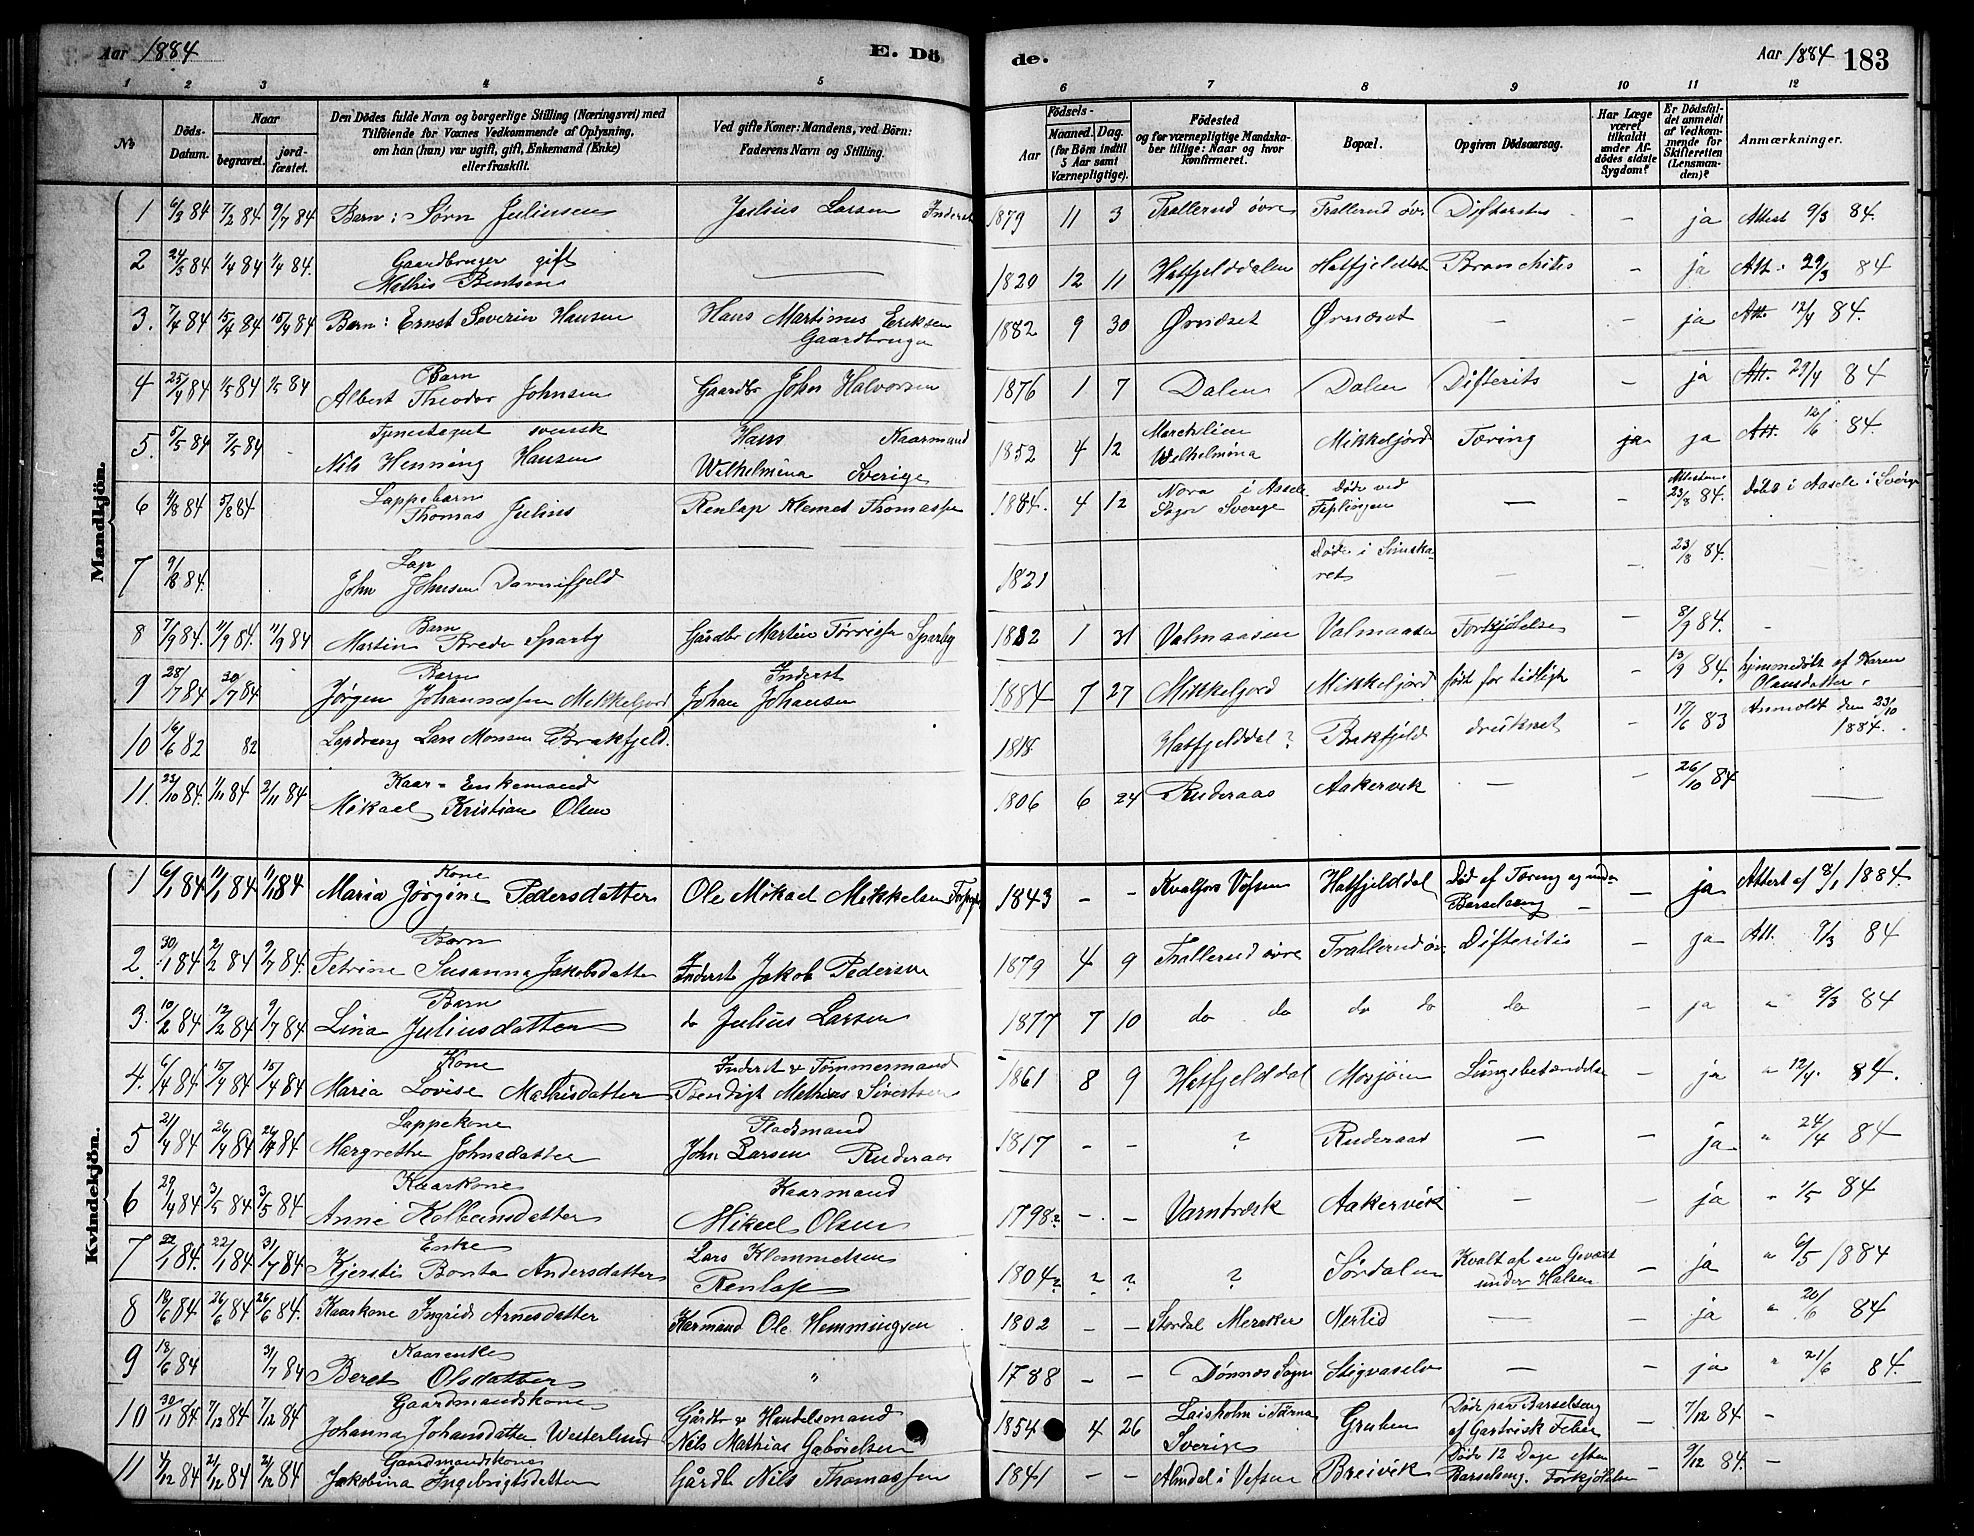 Aar 1884 E. Dö
de. Aar 1884 183
1 2 3 4 5
6 7 8 9 10 11 12
No
Döds-
Datum.
Naar
begravet.
jord-
fæstet.
Den Dödes fulde Navn og borgerlige Stilling (Næringsvei) med
Tilföiende for Voxnes Vedkommende af Oplysning,
om han (hun) var ugift, gift, Enkemand (Enke)
eller fraskilt.
Ved gifte Koner: Mandens, ved Börn:
Faderens Navn og Stilling.
Födsels-
Aar
Maaned.
Dag.
(for Börn indtil
5 Aar samt
Værnepligtige).
Födested
og for værnepligtige Mandska-
ber tillige: Naar og hvor
konfirmeret.
Bopæl.
Opgiven Dödsaarsag.
Har Læge
været
tilkaldt
under Af-
dödes sidste
Sygdom?
Er Dödsfal-
det anmeldt
af Vedkom-
mende for
Skifteretten
(Lensman-
den)?
Anmærkninger.
Mandkjön.
1 6/3 84 7/2 84 9/7 84 Barn: Sørn Juliusen Julius Larsen Inderst 1879 11 3 Trallerud øvre Trallerud øv. Difterites - ja Attest 9/3 84.
2 24/3 84 1/4 84 1/4 84. Gaardbruger gift
Mathis Bentsen — 1820 12 11 Hatfjelddalen Hatfjelddal Bronchites - ja Att. 29/3 84
3. 7/4 84 15/4 84 15/4 84 Barn: Ernst Severin Hansen Hans Martinus Eriksen
Gaardbruger 1882 9 30 Ørnæset Ørnæset - ja Att. 12/4 84.
4 25/4 84 1/5 84 1/5 84 Barn
Albert Theodor Johnsen Gaardbr John Halvorsen 1876 1 7 Dalen Dalen Difterits - ja Att. 29/4 84
5. 5/5 84 7/5 84 - Tjenestegut svensk
Nils Henning Hansen Hans Kaarmand
Wilhelmina Sverige 1852 4 12 Marchlien
Wilhelmina Mikkeljord Tæring ja ja Att. 12/6 84.
6 4/8 84 5/8 84 Lappebarn
Thomas Julius Renlap Klemet Thomassen 1884. 4 12 Nora i Assele
Sogn Sverige Døde ved
Tiplingen — - Attesten
23/8 84. døbt i Aasele i Sverige
7 9/8 84. Lap
John Johnsen Davnifjeld 1821 døde i Simska-
ret - - 23/8 84.
8 7/9 84. 11/9 84. 11/9 84 Barn
Martin Brede Sparby Gårdbr Martin Tørrissen Sparby 1882 1 31 Valmaasen Valmaasen Forkjølelse - 8/9 84. -
9 28/7 84 30/7 84 Barn
Jørgen Johannessen Mikkeljord Inderst
Johan Johansen 1884 7 27 Mikkeljord Mikkeljord født for tidligt - 13/9 84. hjemmedøbt af Karen
Olausdatter.
10 16/6 82 82 Lapdreng Lars Monsen Brakfjeld. 1818 Hatfjelddal? Brakfjeld druknet - 17/6 83 Anmeldt den 23/10
1884.
11. 23/10 84. 1/11 84 2/11 84 Kaar-Enkemand
Mikael Kristian Olsen 1806 6 24 Ruderaas Aakervik - - 26/10 84 —
Kvindekjön.
1 6/1 84 11/1 84 11/1 84 Kone
Maria Jørgine Pedersdatter Ole Mikael Mikkelsen 1843 - - Kvalfors Vefsen Hatfjelddal Død af Tæring og under
Barselseng - ja Attest af 8/1 1884.
2. 30/1 84 2/2 84 9/7 84. Barn
Petrine Susanna Jakobsdatter Inderst Jakob Pedersen 1879 4 9 Trallerud øvre Trallerud øv. Difteritis - ja Att. 9/3 84
3. 10/2 84 12/2 84 9/7 84 Barn
Lina Juliusdatter do Julius Larsen 1877 7 10 do do do do do - ja " 9/3 84
4. 6/4 84 15/4 84 15/4 84 Kone
Maria Lovise Mathisdatter Inderst & Tømmermand
Bendigt Mathias Sivertsen 1861 8 9 Hatfjelddal Mosjøen Lungebetændelse - ja " 12/4. 84.
5 21/4 84 26/4 84 26/4 84 Lappekone
Margrethe Johnsdatter Pladsmand
John Larsen Ruderaas 1817 - - ? Ruderaas - - ja " 24/4 84
6 29/4 84 3/5 84 3/5 84 Kaarkone
Anne Kolbensdatter Kaarmand
Mikael Olsen 1798? - - Varntræsk Aakervik - - ja " 1/5 84
7 22/1 84. 22/1 84 31/7 84 Enke
Kjersti Bonta Andersdatter Lars Klemmetsen
Renlap 1804? ? ? ? Sørdalen Kvalt af en Gevæxt
under Halsen - ja " 6/5 1884
8 18/6 84. 26/6 84 26/6 84. Kaarkone Ingrid Arnesdatter Karmand Ole Hemmingsen 1802 - - Stordal Meraker Nerlid — - ja " 20/6 84
9 18/6 84 31/7 84 Kaarenke
Beret Olsdatter " 1788 - - Dönnes Sogn Stigvaselv - - ja " 21/6 84.
10 30/11 84 7/12 84 7/12 84 Gaardmandskone
Johanna Johansdatter Westerlund Gårdbr & Handelsmand
Nils Mathias Gabrielsen 1854 4 26 Laisholm i Tärna
Sverige Gruben Døde paa Barselseng
af Gastrisk Feber - 7/12 84 -
11 4/12 84 21/12 84 21/12 84 Gaardmandskone
Jakobina Ingebrigtsdatter Gårdb Nils Thomassen 1841 - - Almdal i Vefsen Breivik Døde 12 Dage efter
Barselseng. Forkjølelse - 9/12 84. -